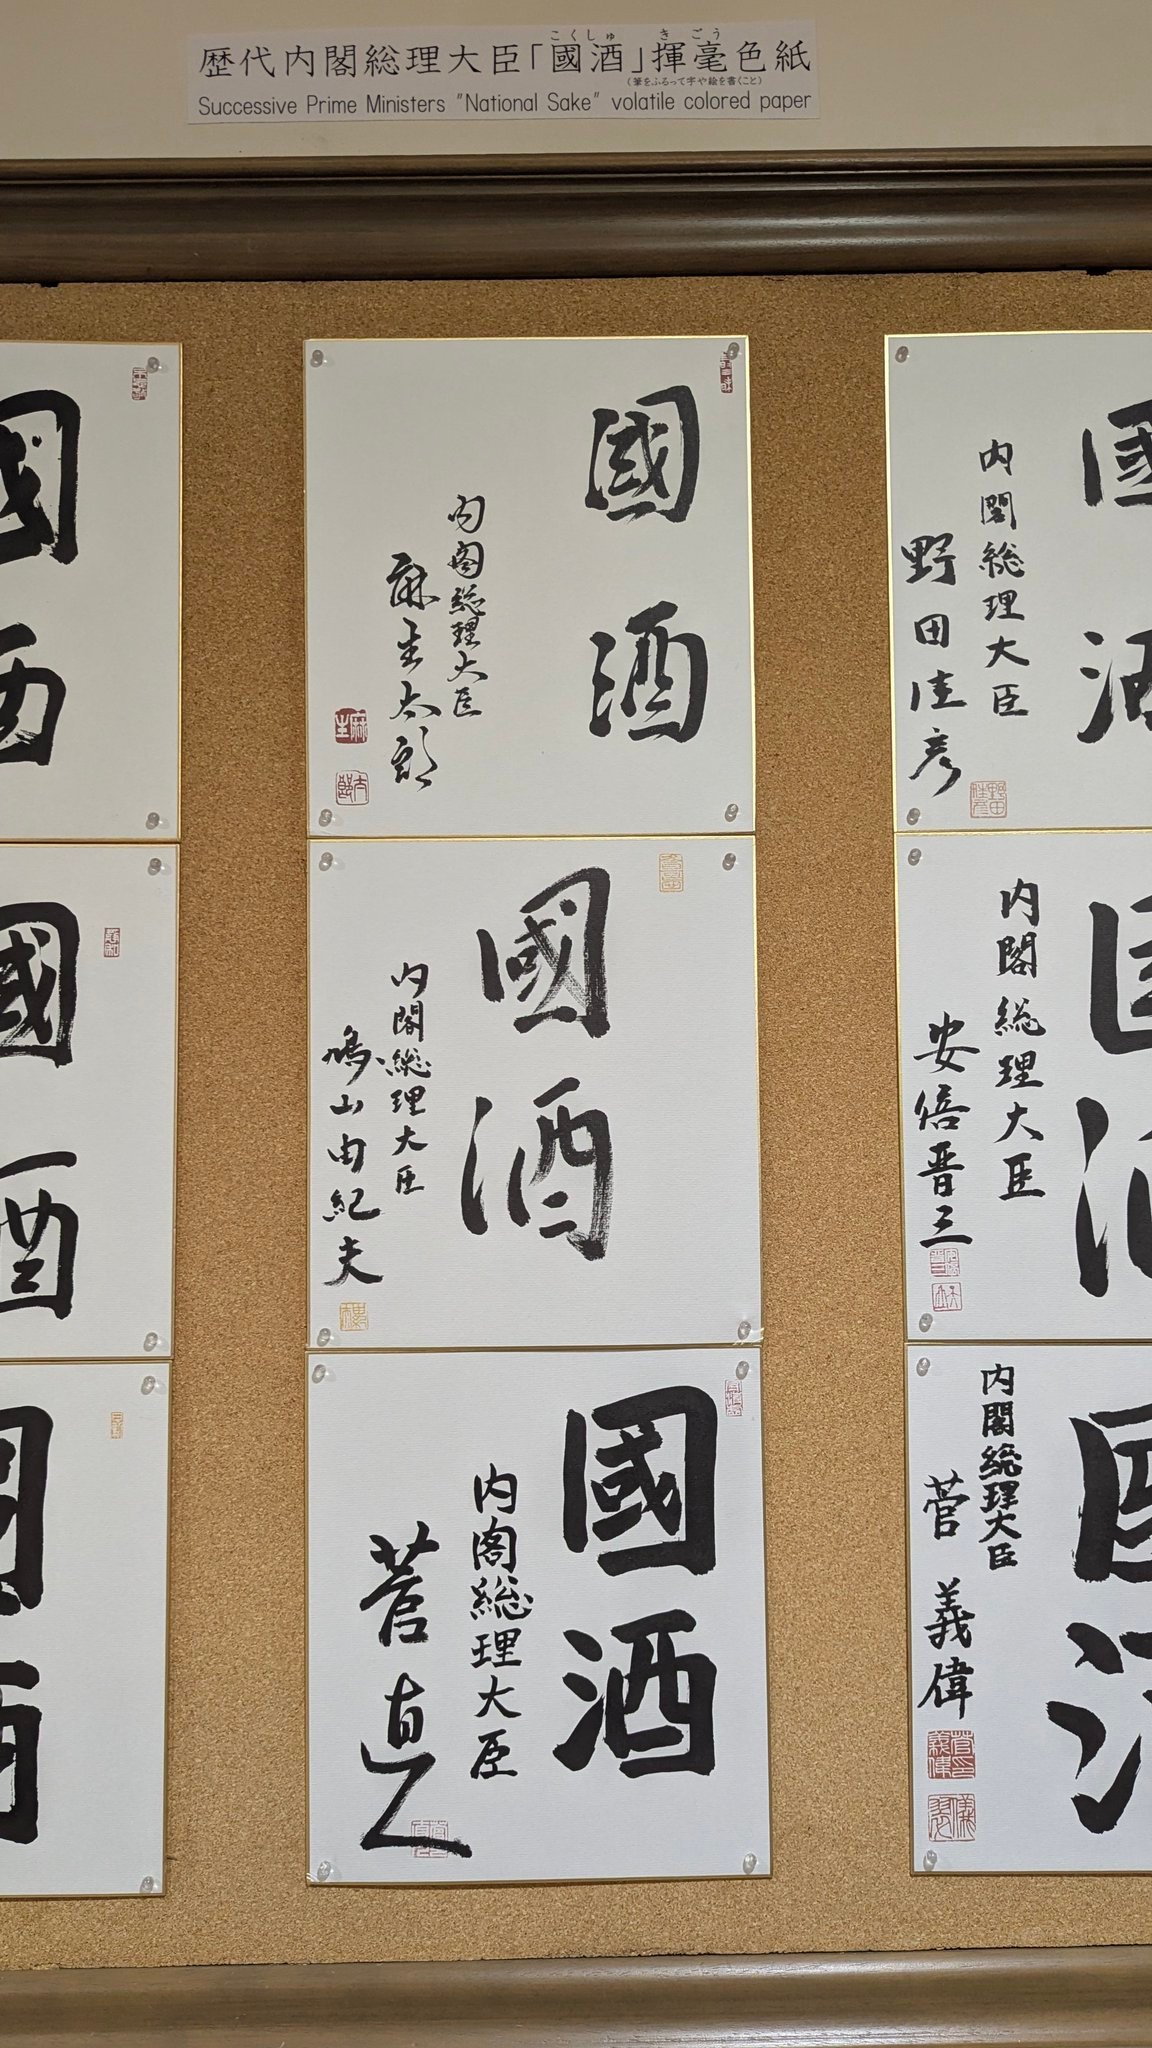 こくしゅ きごう
歴代内閣総理大臣「國酒」揮毫色紙
(筆をふるって字や絵を書くこと)
Successive Prime Ministers "National Sake" volatile colored paper
國酒
内閣総理大臣
麻生太郎
麻生
太郎
國酒
内閣総理大臣
鳩山由紀夫
國酒
内閣総理大臣
菅直人
國酒
内閣総理大臣
野田佳彦
野田佳彦
國酒
内閣総理大臣
安倍晋三
國酒
内閣総理大臣
菅義偉
菅義偉
國酒
國酒
國酒